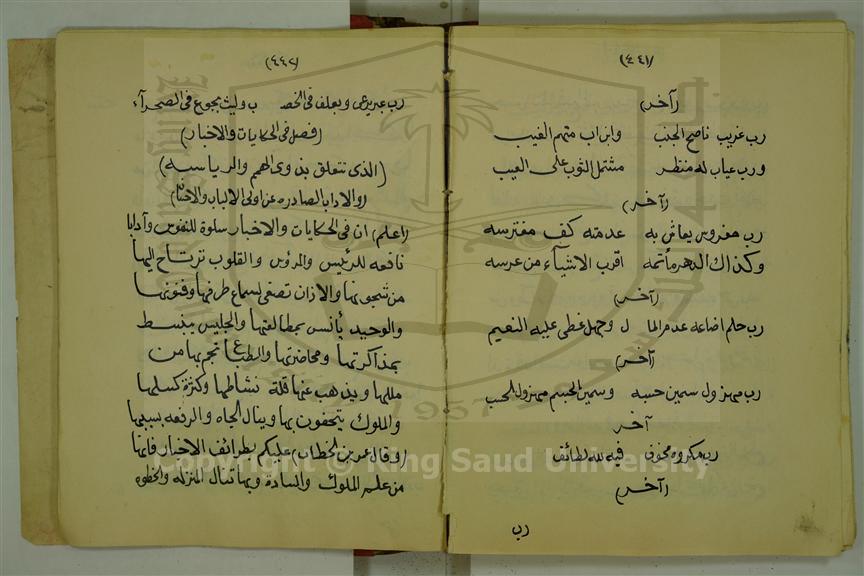 (٤٤١)
(آخر)
رب غريب ناصح الجنب وابن اب متهم الغيب
ورب عياب له منظر مشتمل الثوب على العيب
(آخر)
رب مغروس يعاش به عدمته كف مغترسه
وكذاك الدهر مأتمه اقرب الاشيآء من عرسه
(آخر)
رب حلم اضاعه عدم الما ل وجهل غطى عليه النعيم
(آخر)
رب مهزول سمين حسبه وسمين الجسم مهزول الحسب
آخر
رب مكروه مخوف فيه لله لطائف
(آخر)
رب
(٤٤٢)
رب عير يرعى ويعلف في الخصب وليث يجوع في الصحرآء
(فصل في الحكايات والاخبار)
(الذي تتعلق بذوى الهمم والرياسه)
(والاداب الصادره عن اولى الالباب)
(اعلم) ان في الحكايات والاخبار سلوة للنفوس وآدابا
نافعه للرئيس والمرؤس والقلوب ترتاح اليها
من شجونها والاذان تصغى لسماع طرفها وفنونها
والوحيد يأنس بمطالعتها والجليس ينبسط
بمذاكرتها ومحاضرتها والطباع تجم بها من
مللها ويذهب عنها قلة نشاطها وكثرة كسلها
والملوك يتحفون بها وينال الجاه والرفعه بسببها
(وقال عمر بن الخطاب) عليكم بطرائف الاخبار فانها
من علم الملوك والسادة وبها تنال المنزله والحظوه
Copyright © King Saud University
1957